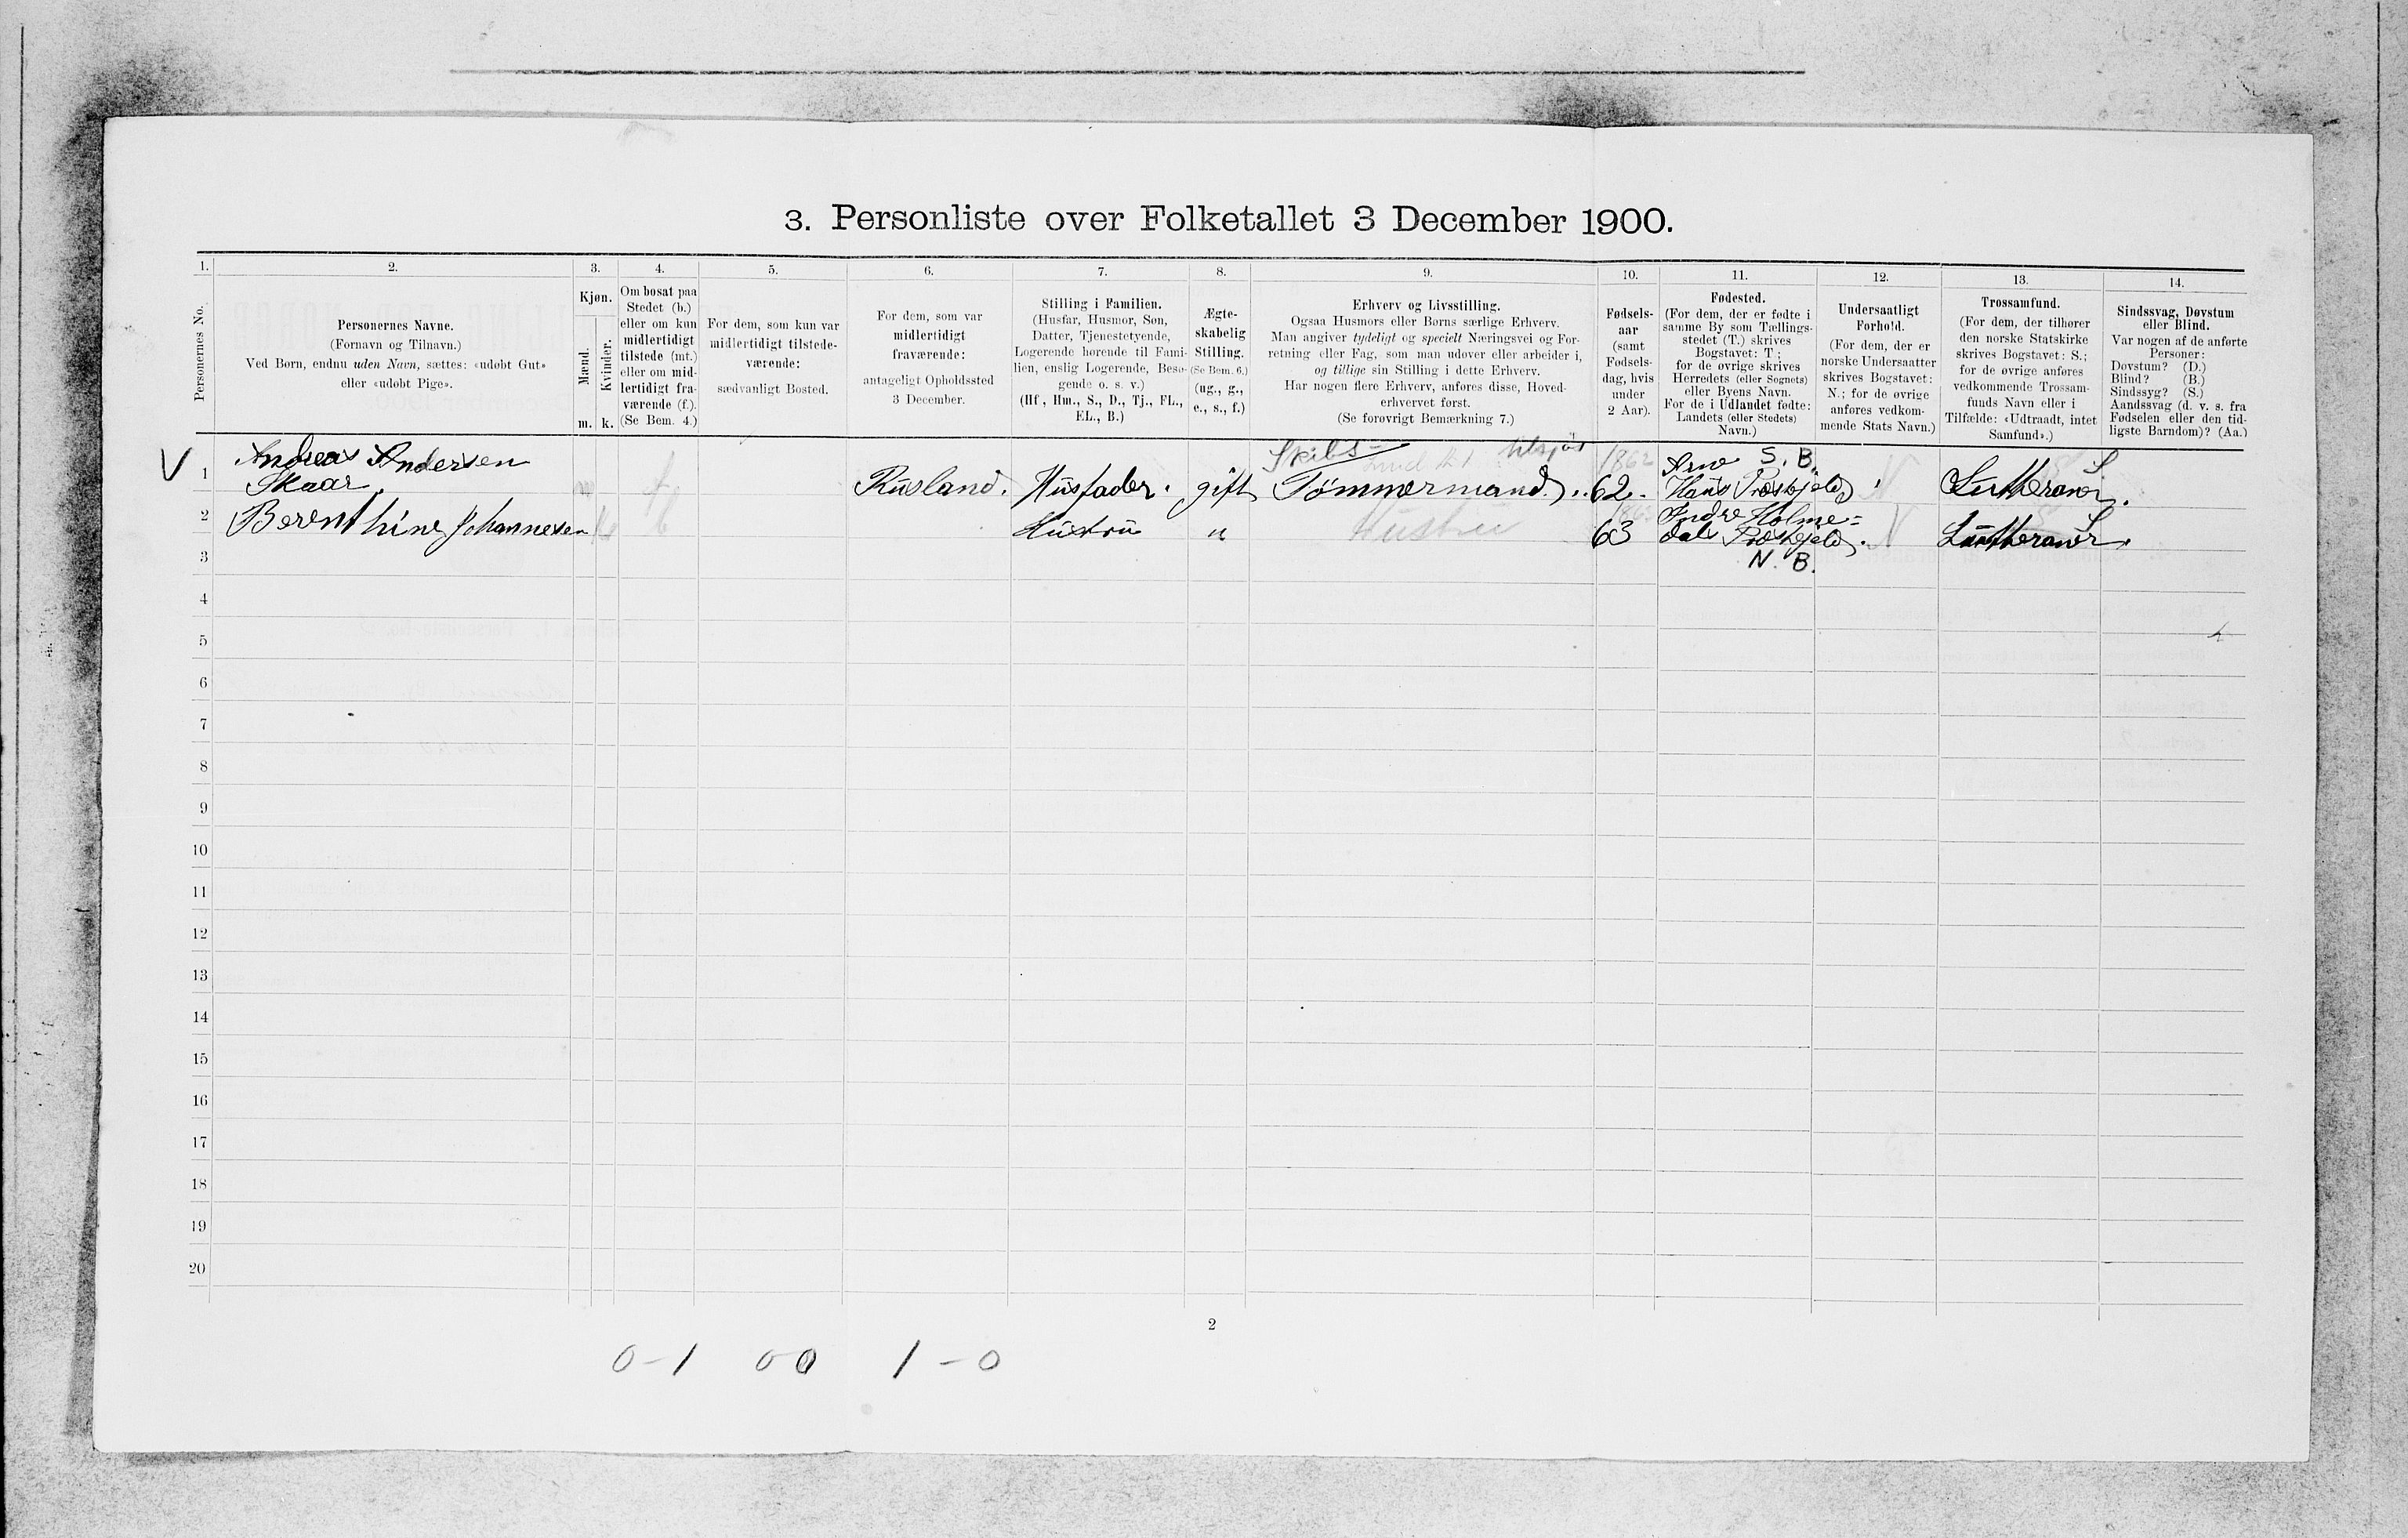 3. Personliste over Folketallet 3 December 1900.
1. 2. 3. 4. 5. 6. 7. 8. 9. 10. 11. 12. 13. 14.
Personernes No.
Personernes Navne.
(Fornavn og Tilnavn.)
Ved Børn, endnu uden Navn, sættes: «udøbt Gut»
eller «udøbt Pige».
Kjøn.
Mænd.
Kvinder.
m. k.
Om bosat paa
Stedet (b.)
eller om kun
midlertidigt
tilstede (mt.)
eller om mid-
lertidigt fra-
værende (f.).
(Se Bem. 4.)
For dem, som kun var
midlertidigt tilstede-
værende:
sædvanligt Bosted.
For dem, som var
midlertidigt
fraværende:
antageligt Opholdssted
3 December.
Stilling i Familien.
(Husfar, Husmor, Søn,
Datter, Tjenestetyende,
Logerende hørende til Fami-
lien, enslig Logerende, Besø-
gende o. s. v.)
(Hf., Hm., S., D., Tj., FL.,
EL., B.)
Ægte-
skabelig
Stilling.
(Se Bem. 6.)
(ug., g.,
e., s., f.)
Erhverv og Livsstilling.
Ogsaa Husmors eller Børns særlige Erhverv.
Man angiver tydeligt og specielt Næringsvei og For-
retning eller Fag, som man udøver eller arbeider i,
og tillige sin Stilling i dette Erhverv.
Har nogen flere Erhverv, anføres disse, Hoved-
erhvervet først.
(Se forøvrigt Bemærkning 7.)
Fødsels-
aar
(samt
Fødsels-
dag, hvis
under
2 Aar).
Fødested.
(For dem, der er fødte i
samme By som Tællings-
stedet (T.) skrives
Bogstavet: T;
for de øvrige skrives
Herredets (eller Sognets)
eller Byens Navn.
For de i Udlandet fødte:
Landets (eller Stedets)
Navn.)
Undersaatligt
Forhold.
(For dem, der er
norske Undersaatter
skrives Bogstavet:
N.; for de øvrige
anføres vedkom-
mende Stats Navn.)
Trossamfund.
(For dem, der tilhører
den norske Statskirke
skrives Bogstavet: S.;
for de øvrige anføres
vedkommende Trossam-
funds Navn eller i
Tilfælde: «Udtraadt, intet
Samfund».)
Sindssvag, Døvstum
eller Blind.
Var nogen af de anførte
Personer:
Døvstum? (D.)
Blind? (B.)
Sindssyg? (S.)
Aandssvag (d. v. s. fra
Fødselen eller den tid-
ligste Barndom)? (Aa.)
V Andreas Andersen Skibs= tilsjøs 1862 Arne S. B. S
1 Skaar. m f Rusland. Husfader. gift Tømmermand. 62. Hans Præstgjeld. N Lutheraner.
2 Berenthine Johannesen k b Hustru " Hustru 63 Indre Holme=
dals Præstgjeld. N Lutheraner. S
3 N. B.
4
5
6
7
8
9
10
11
12
13
14
15
16
17
18
19
20
2
0-1 00 1-0